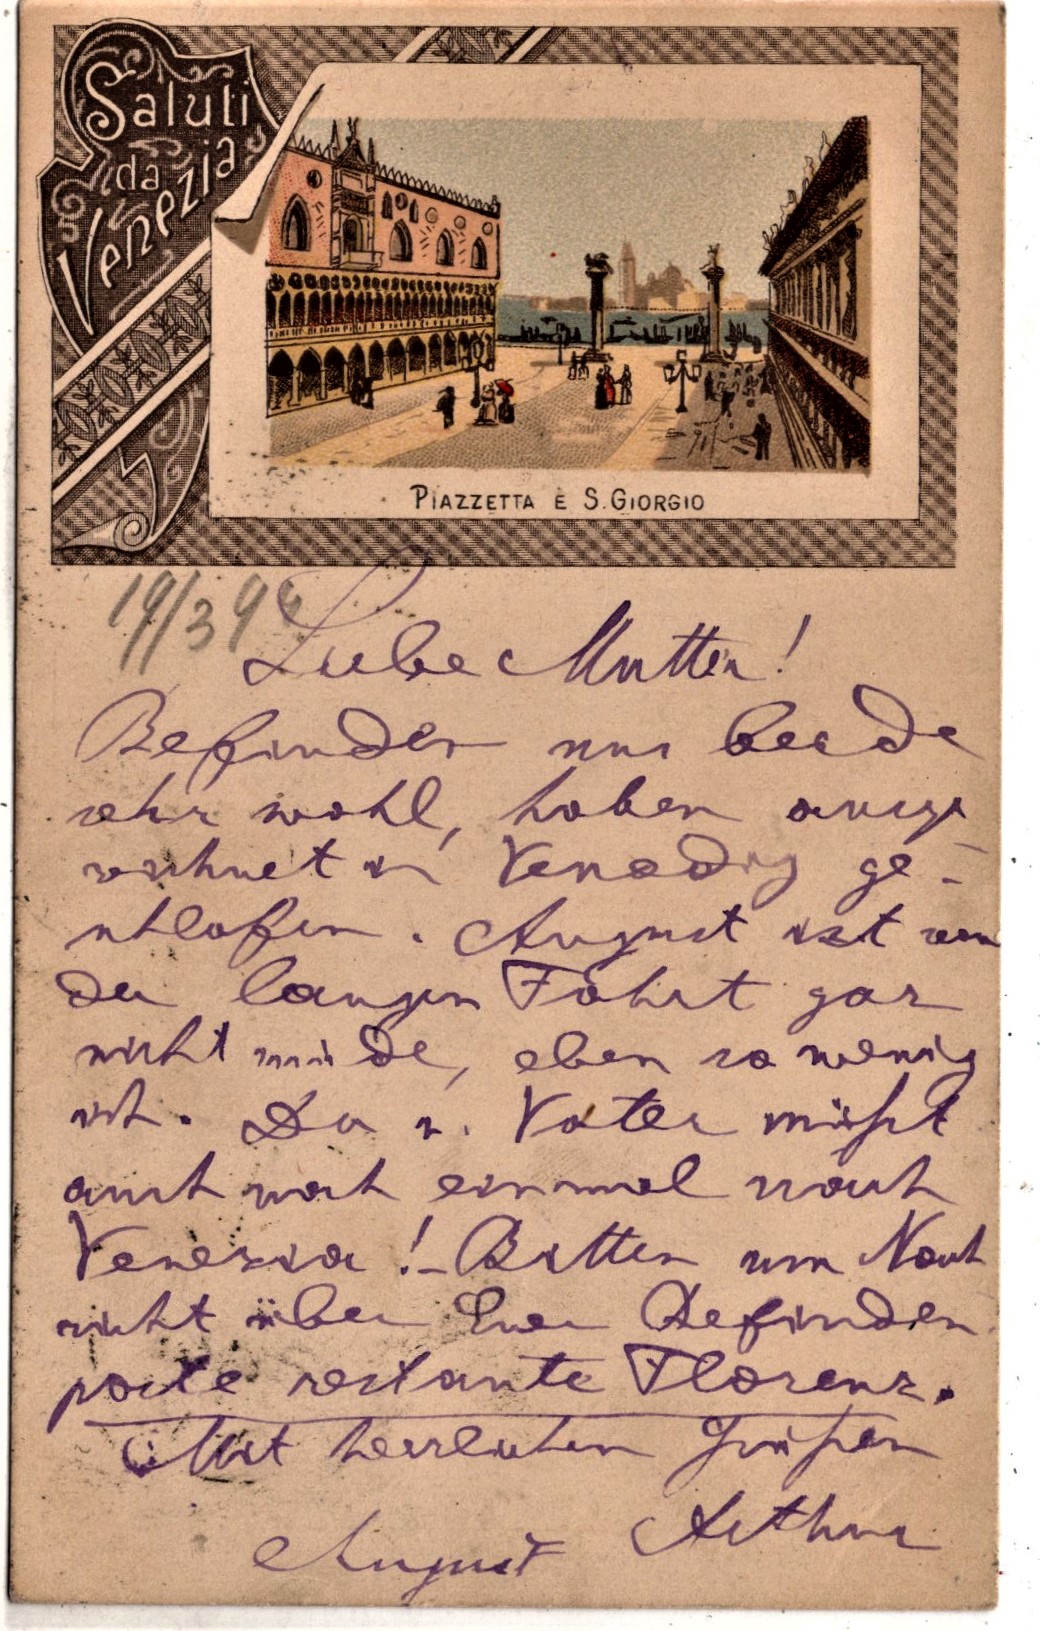 Saluti
da
Venezia
PIAZZETTA E S. GIORGIO
19/3 94
Liebe Mutter!
Befinden uns beide
sehr wohl, haben ausge
zeichnet in Venedig ge-
schlafen. August ist von
der langen Fahrt gar
nicht müde, eben so wenig
ich. Du u. Vater müßt
auch noch einmal nach
Venezia! - Bitten um Nach
richt über Euer Befinden
poste restante Florenz.
Mit herzlichen Grüßen
Arthur
August